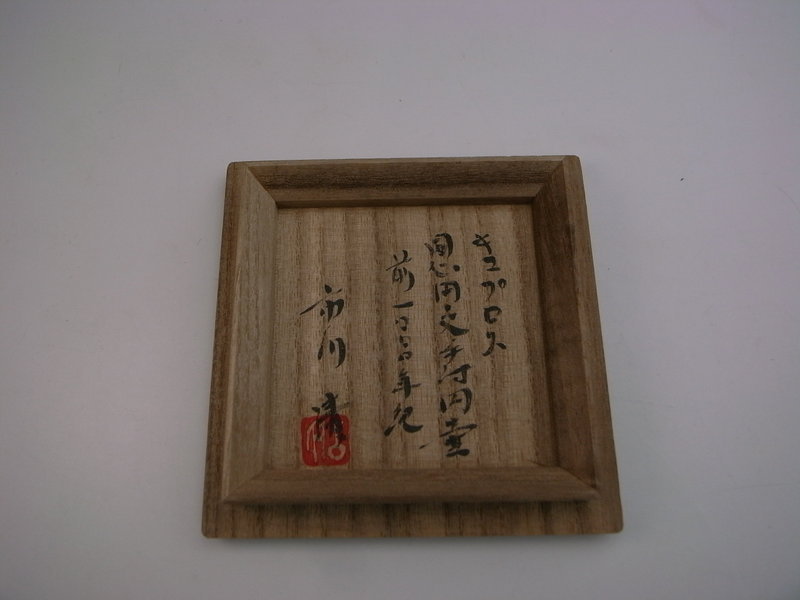 キュプロス
同心円文手付円壷
前一〇〇〇年紀
市川 清